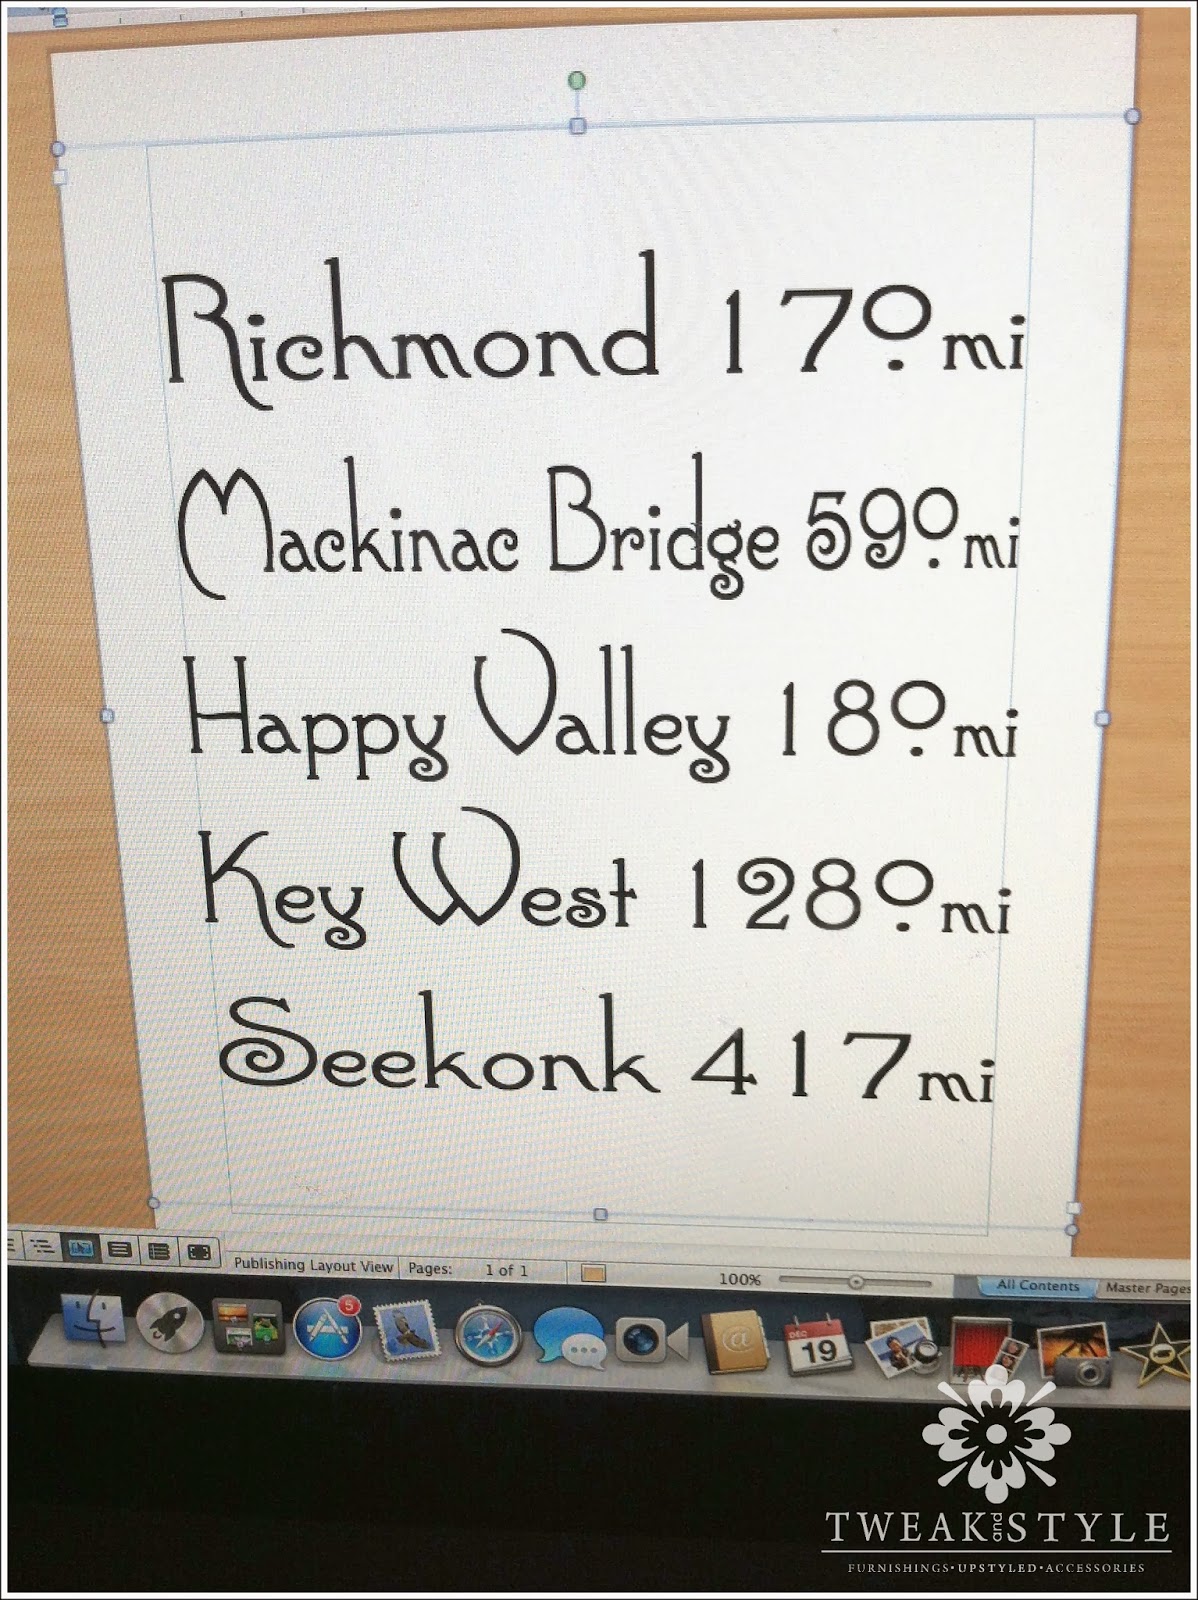 Richmond 170mi
Mackinac Bridge 590mi
Happy Valley 180mi
Key West 1280mi
Seekonk 417mi
Publishing Layout View Pages: 1 of 1 100% All Contents Master Pages
5
DEC
19
@
TWEAK and STYLE
FURNISHINGS•UPSTYLED•ACCESSORIES